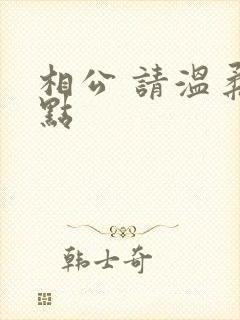 相公 請溫柔
點
韩士奇